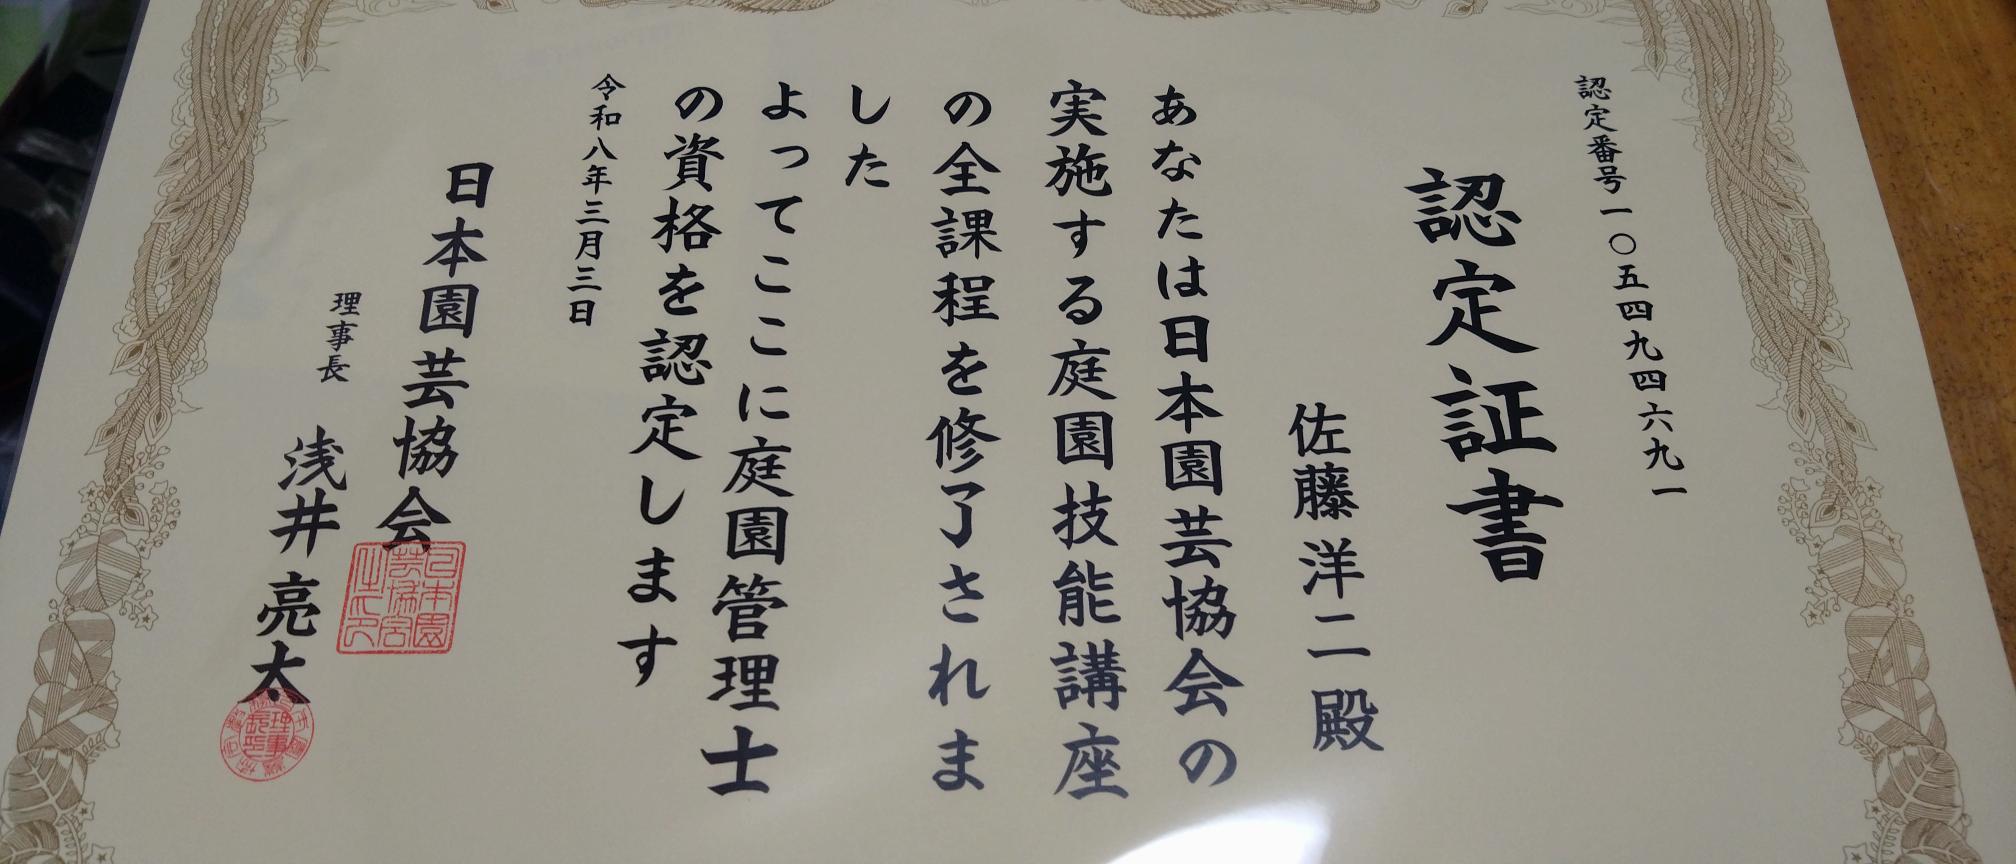 認定番号一〇五四九四六九一
認定証書
佐藤洋二殿
あなたは日本園芸協会の
実施する庭園技能講座
の全課程を修了されま
した
よってここに庭園管理士
の資格を認定します
令和八年三月三日
日本園芸協会
理事長 浅井亮太